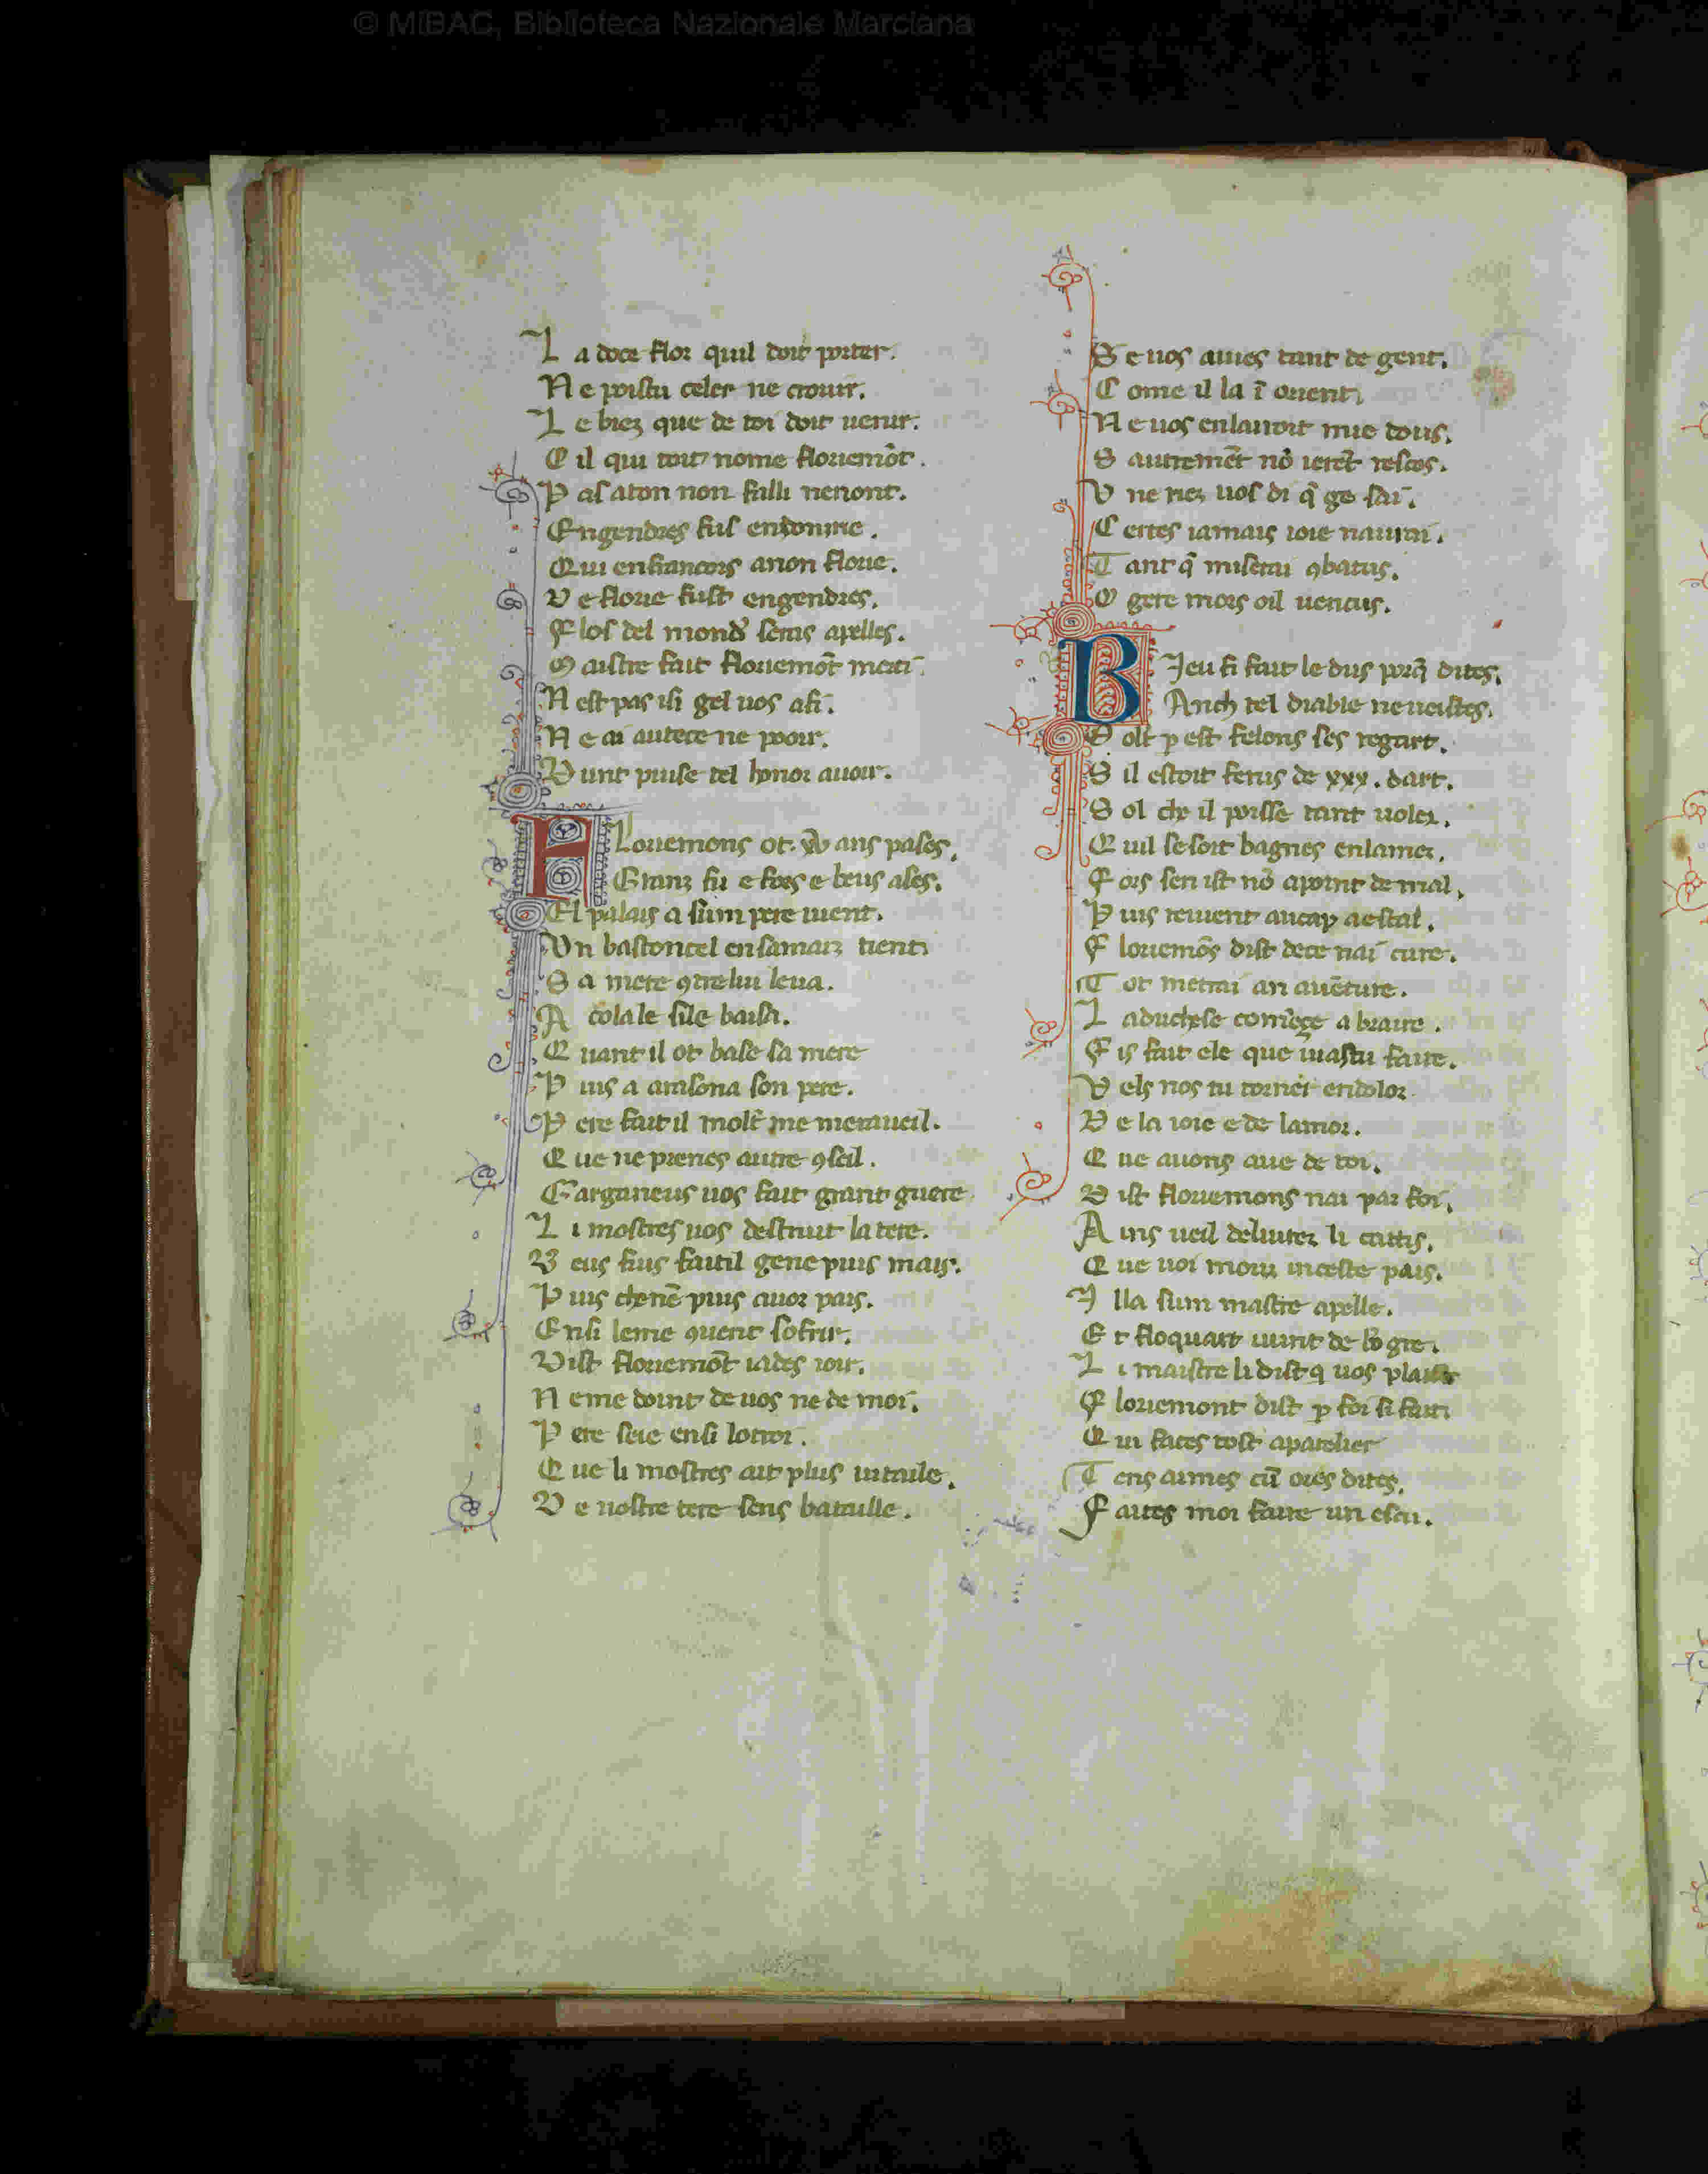 © MiBAC, Biblioteca Nazionale Marciana
L a doce flor quil doit porter.
N e poistu celer ne crouir.
L e biez que de toi doit uenir.
C il qui toit nome flouemōt.
P as aton non falli nenont.
Engendres fus
Qui enfrancois anon floue.
D e floue fust engendres.
F los del mond serais apelles.
M aistre fait flouemōt merci.
N est pas isi gel uos afi.
N e ai autece ne pooir.
D unt puise tel honor auoir.
F Louemons ot .xv ans pases.
Granz fu e fors e beus ases.
El palais a sum pere uient.
Vn bastoncel en samaiz tient.
S a mere ꝯtrelui leua.
A cola le sile baisa.
Q uant il ot base sa mere
P uis a araisona son pere.
P ere fait il molt me meraueil.
Q ue ne prenes autre ꝯseil.
Garganeus uos fait grant guere
L i mostres uos destruit la tere.
B eus fius fait il gene puis mais.
P uis che nē puis auor pais.
Ensi leme ꝯuent sofrir.
Dist flouemōt
N eme doint de uos ne de moi.
P ere seie ensi lotroi.
Q ue li mostres ait plus uitaile.
D e nostre tere sens bataille.
S e uos auies tant de gent.
C ome il la ī orient
N e uos enlairoit mie tous.
S autremēt nō ierēt rescos.
V ne riez uos di q̄ ge sai.
C ertes iamais ioie naurai.
T ant q̄ miserai ꝯbatus.
O gere mors oil uencus.
B Ieu fi fait le dus porq̄ dites.
Anch tel diable ne ueistes.
M olt p est felons ses regart.
S il estoit ferus de xxx. dart.
S ol che il poisse tant uoler.
Q uil se soit bagnes enlamer.
F ors sen ist nō apoint de mal.
P uis reuient aucap aestal.
F louemōs dist dece nai cure.
T ot metrai an auēture.
L aduchese comēce a braire.
F is fait ele que uuastu faire.
V els nos tu torner endolor
D e la ioie e de lamor.
Q ue auons aue de toi.
D ist flouemons nai par foi.
A ins ueil deliurer li caitis.
Q ue uoi morir inceste pais.
I lla sum mastre apelle.
E t floquart uint de bō gre.
L i maistre li dist q uos plaist
F louemont dist p foi si fait
Q ui faces tost aparelier
T ens armes cū ores dites.
F aites moi faire un escu.